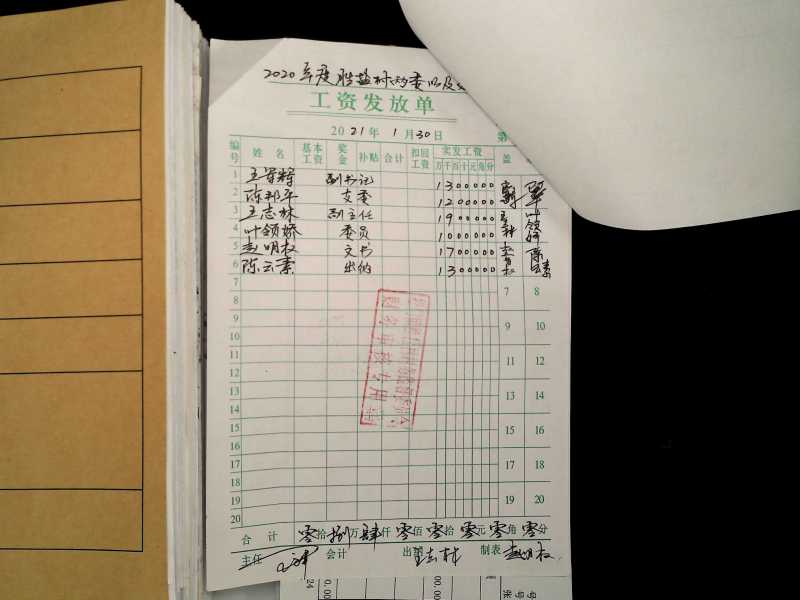 2020年度胜盐村村委以及
工资发放单
2021年1月30日 第
编号 姓名 基本工资 奖金 补贴 合计 扣回工资 实发工资 盖
万 千 百 十 元 角 分
1 副书记 1300000
2 陈邦平 支委 1200000
3 王志林 副主任 1900000
4 叶领娇 委员 1000000
5 赵明权 文书 1700000
6 陈云素 出纳 1300000
7 7 8
8
9 9 10
10
11 11 12
12
13 13 14
14
15 15 16
16
17 17 18
18
19 19 20
20
合计 零拾捌万肆仟零佰零拾零元零角零分
主任 会计 出纳 王志林 制表 赵明权
财务审核专用